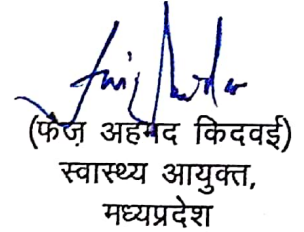 (फैज़ अहमद किदवई)
स्वास्थ्य आयुक्त,
मध्यप्रदेश